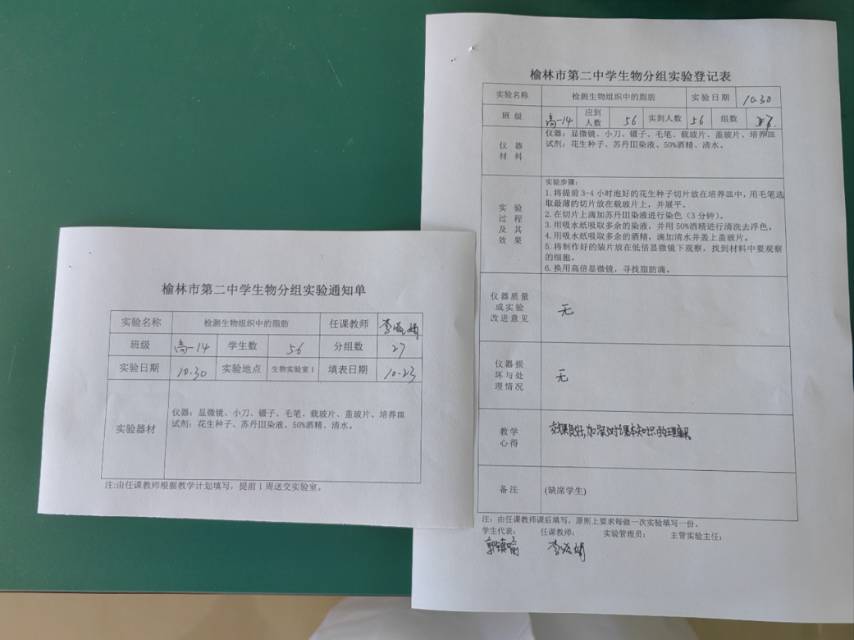 榆林市第二中学生物分组实验通知单
实验名称 检测生物组织中的脂肪 任课教师
班级 高一14 学生数 56 分组数 27
实验日期 10.30 实验地点 生物实验室1 填表日期 10.23
实验器材
仪器：显微镜、小刀、镊子、毛笔、载玻片、盖玻片、培养皿
试剂：花生种子、苏丹III染液、50%酒精、清水。
注:由任课教师根据教学计划填写，提前1周送交实验室。
榆林市第二中学生物分组实验登记表
实验名称 检测生物组织中的脂肪 实验日期 10.30
班级 高一14 应到人数 56 实到人数 56 组数 27
仪器材料
仪器：显微镜、小刀、镊子、毛笔、载玻片、盖玻片、培养皿
试剂：花生种子、苏丹III染液、50%酒精、清水。
实验过程及其效果
实验步骤：
1.将提前3-4小时泡好的花生种子切片放在培养皿中，用毛笔选
取最薄的切片放在载玻片上，并展平。
2.在切片上滴加苏丹III染液进行染色（3分钟）。
3.用吸水纸吸取多余的染液，并用50%酒精进行清洗去浮色。
4.用吸水纸吸取多余的酒精，滴加清水并盖上盖玻片。
5.将制作好的装片放在低倍显微镜下观察，找到材料中要观察
的细胞。
6.换用高倍显微镜，寻找脂肪滴。
仪器质量或实验改进意见 无
仪器损坏与处理情况 无
教学心得 效果良好，加深对课本知识的理解
备注 (缺席学生)
注：由任课教师课后填写，原则上要求每做一次实验填写一份。
学生代表： 任课教师： 实验管理员： 主管实验主任：